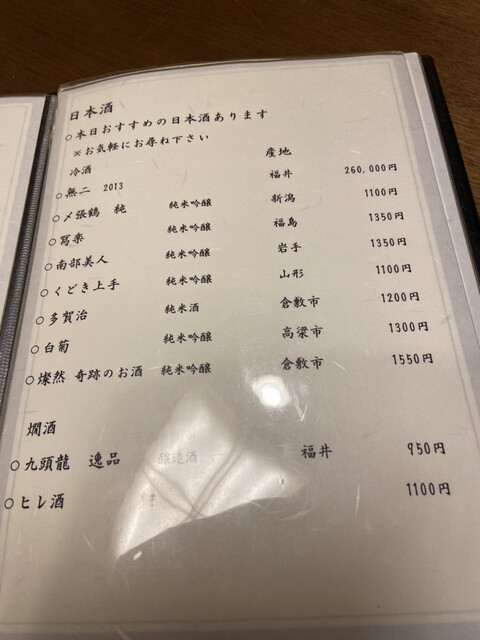 日本酒
○本日おすすめの日本酒あります
※お気軽にお尋ね下さい
冷酒 産地
○無二 2013 福井 260,000円
○〆張鶴 純 純米吟醸 新潟 1100円
○冩楽 純米吟醸 福島 1350円
○南部美人 純米吟醸 岩手 1350円
○くどき上手 純米吟醸 山形 1100円
○多賀治 純米酒 倉敷市 1200円
○白菊 純米吟醸 高梁市 1300円
○燦然 奇跡のお酒 純米吟醸 倉敷市 1550円
燗酒
○九頭龍 逸品 醸造酒 福井 950円
○ヒレ酒 1100円